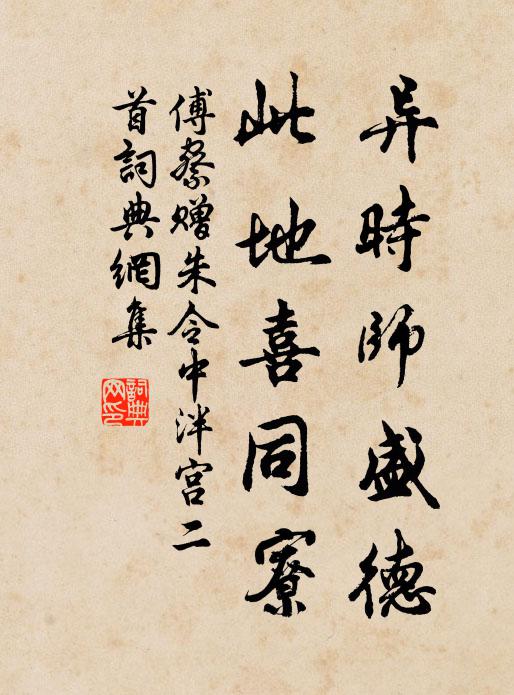 异時師盛德
此地喜同寮
傅察赠朱令中泮宫二
首詞典網集
詞典
网印